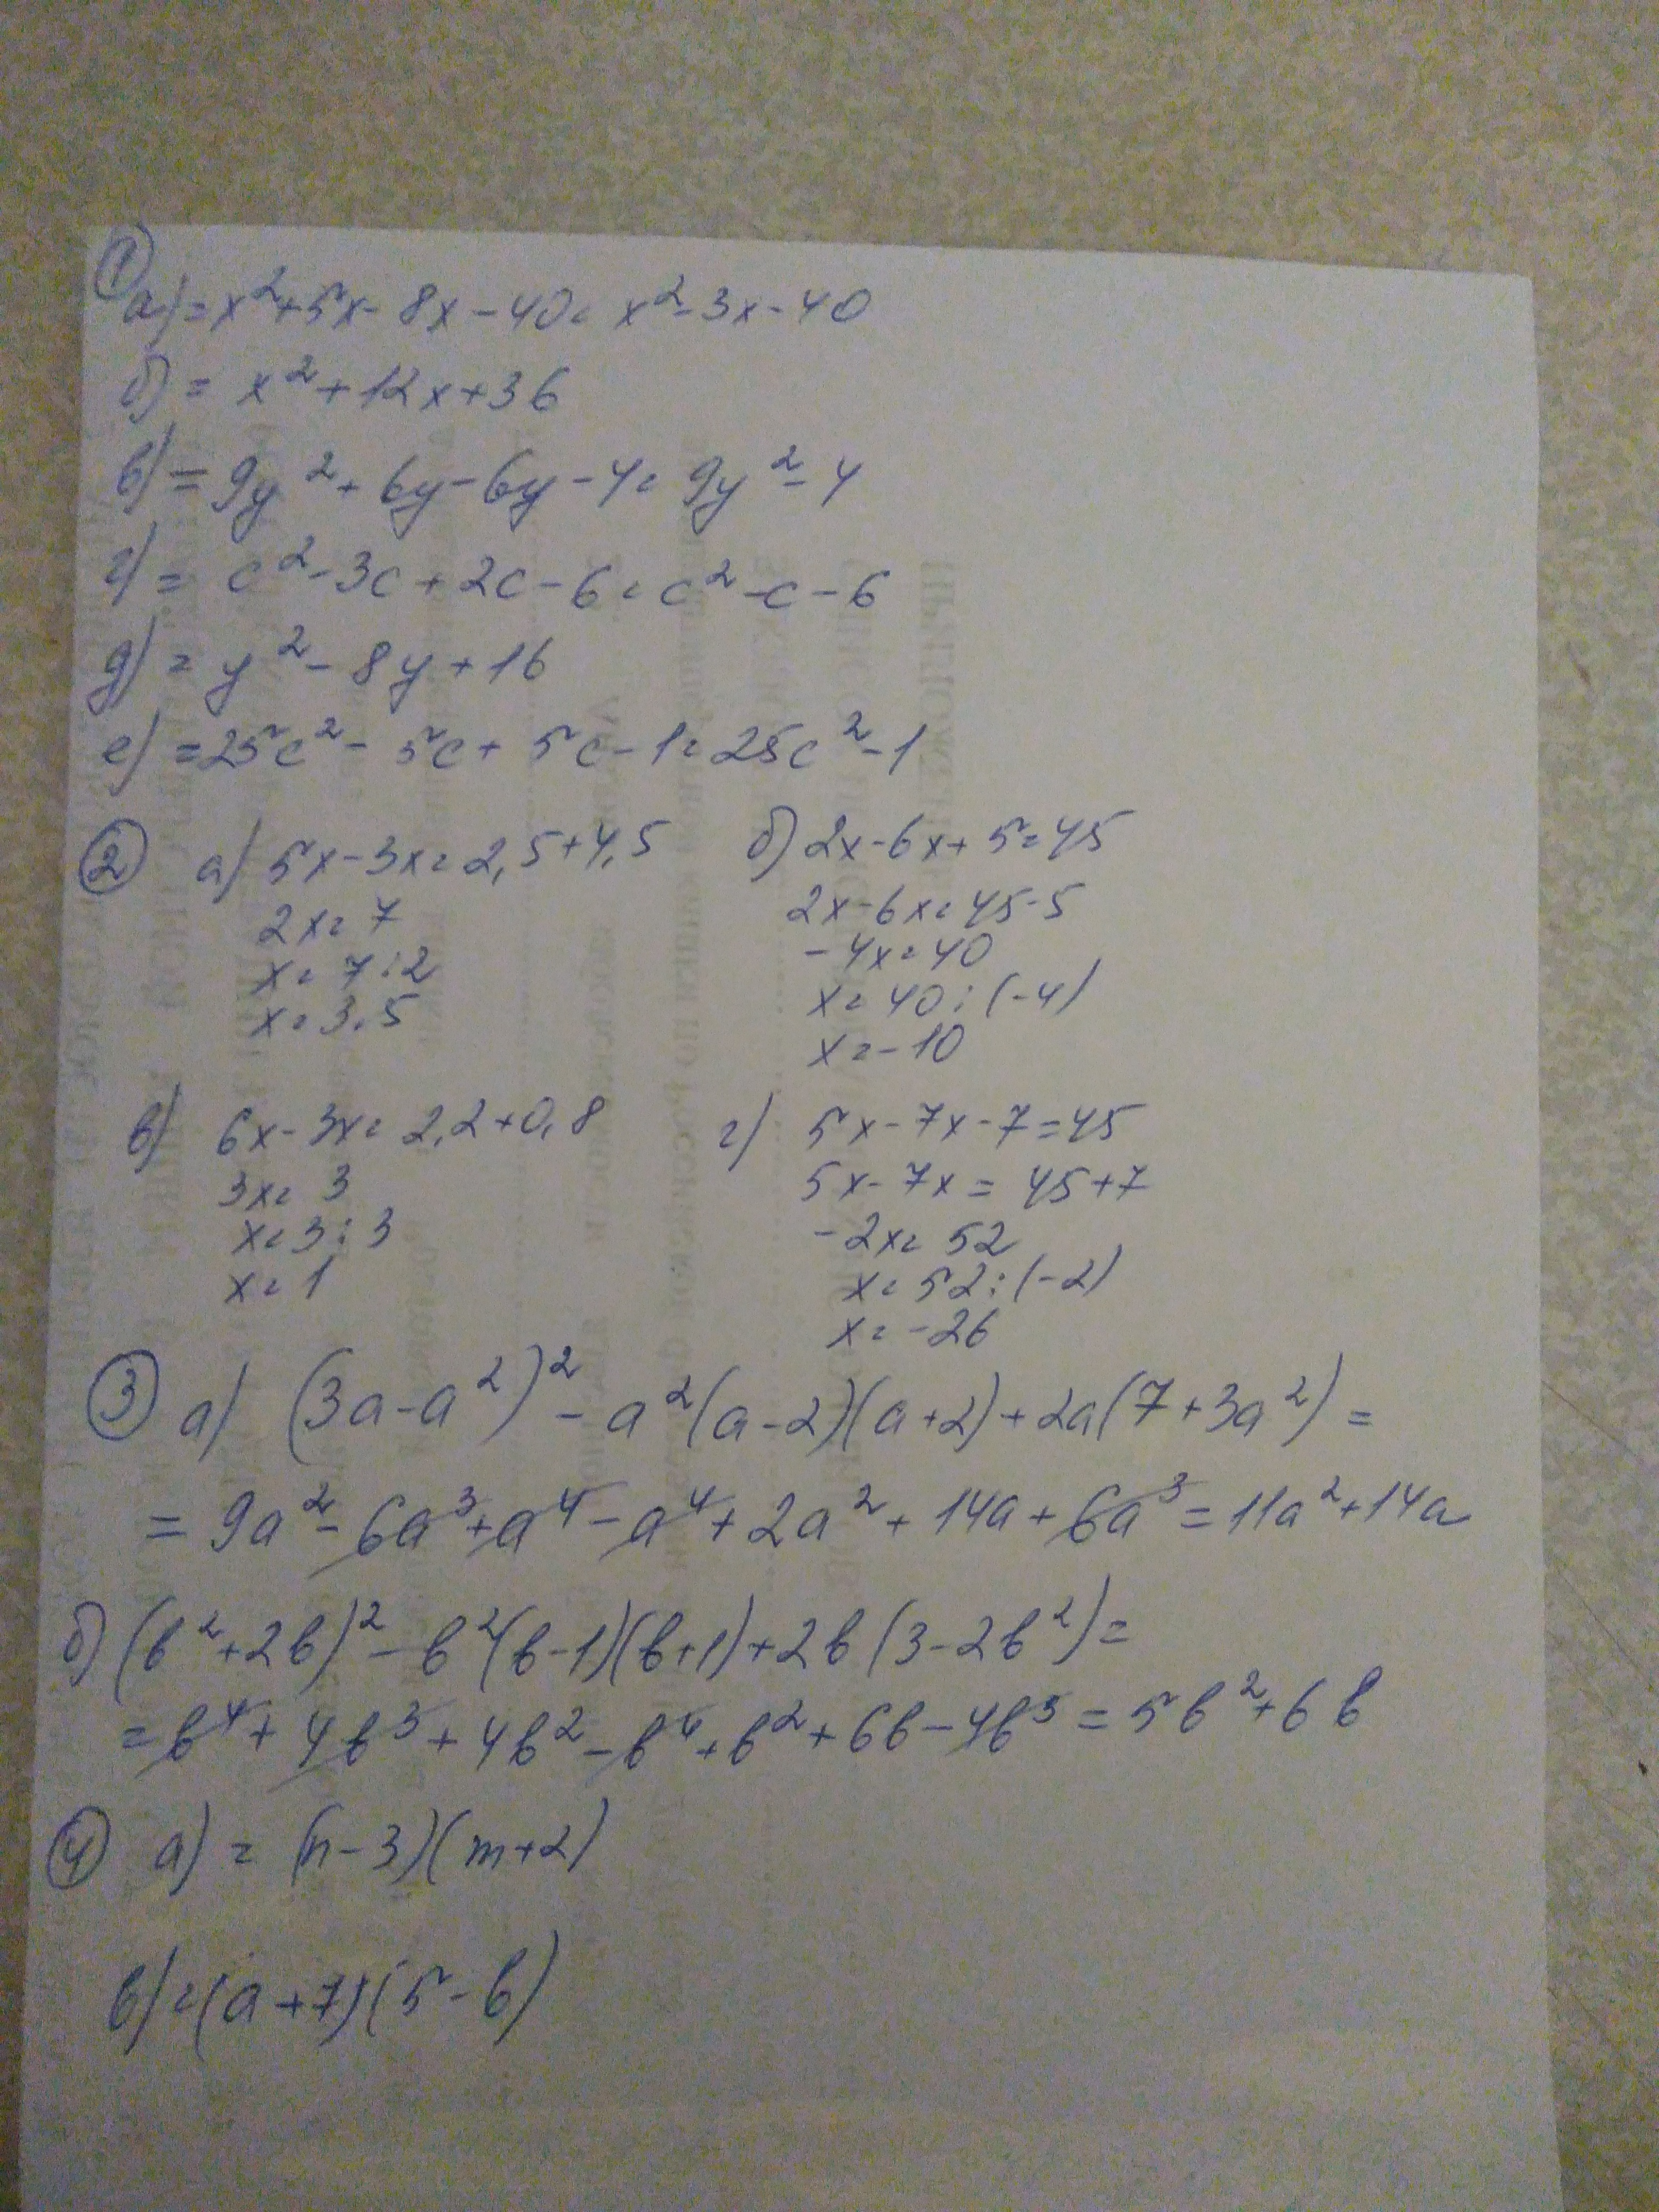 ①
а) = x² + 5x - 8x - 40 = x² - 3x - 40
б) = x² + 12x + 36
в) = 9y² + 6y - 6y - 4 = 9y² - 4
г) = c² - 3c + 2c - 6 = c² - c - 6
д) = y² - 8y + 16
е) = 25c² - 5c + 5c - 1 = 25c² - 1
② а) 5x - 3x = 2,5 + 4,5
2x = 7
x = 7 : 2
x = 3,5
б) 2x - 6x + 5 = 45
2x - 6x = 45 - 5
-4x = 40
x = 40 : (-4)
x = -10
в) 6x - 3x = 2,2 + 0,8
3x = 3
x = 3 : 3
x = 1
г) 5x - 7x - 7 = 45
5x - 7x = 45 + 7
-2x = 52
x = 52 : (-2)
x = -26
③ а) (3a - a²)² - a²(a - 2)(a + 2) + 2a(7 + 3a²) =
= 9a² - 6a³ + a⁴ - a⁴ + 2a² + 14a + 6a³ = 11a² + 14a
б) (b² + 2b)² - b²(b - 1)(b + 1) + 2b(3 - 2b²) =
= b⁴ + 4b³ + 4b² - b⁴ + b² + 6b - 4b³ = 5b² + 6b
④ а) = (n - 3)(m + 2)
в) = (a + 7)(5 - b)